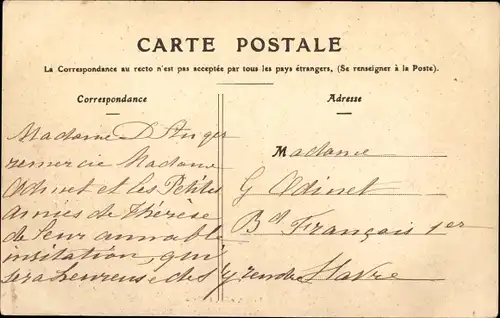 CARTE POSTALE
La Correspondance au recto n'est pas acceptée par tous les pays étrangers, (Se renseigner à la Poste).
Correspondance
Madame D'Anger
remercie Madame
Odinet et les Petites
amies de Thérèse
de leur aimable
invitation, qui
sera heureuse de s'y rendre
Adresse
Madame
G Odinet
Bd François 1er
Havre